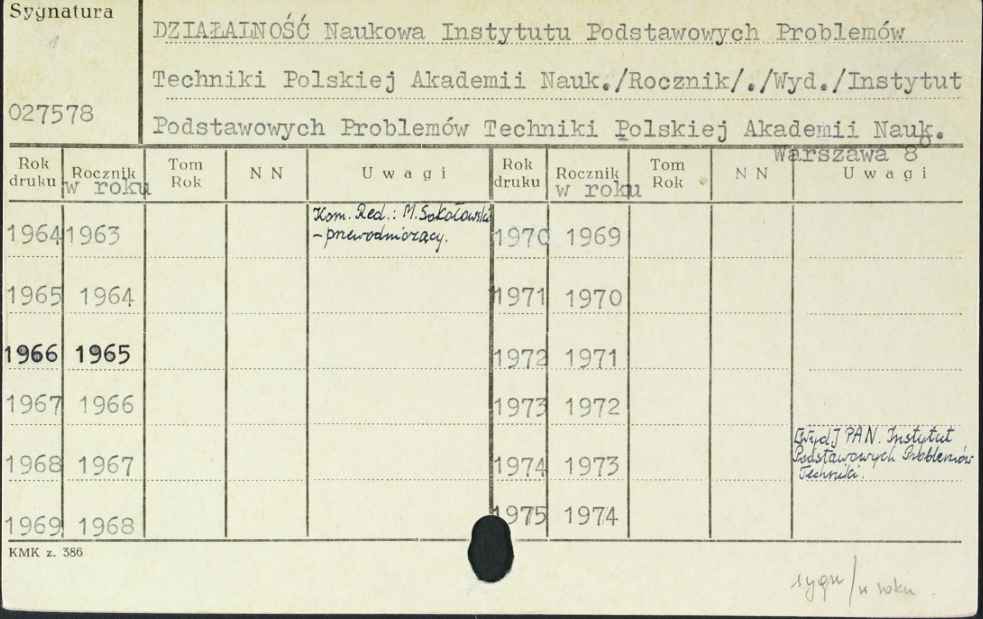 Sygnatura
1
027578
DZIAŁALNOŚĆ Naukowa Instytutu Podstawowych Problemów
Techniki Polskiej Akademii Nauk./Rocznik/./Wyd./Instytut
Podstawowych Problemów Techniki Polskiej Akademii Nauk.
Warszawa 8°
Rok druku Rocznik w roku Tom Rok N N Uwagi Rok druku Rocznik w roku Tom Rok N N Uwagi
1964 1963 Kom. Red.: M. Sokołowski – przewodniczący. 1970 1969
1965 1964 1971 1970
1966 1965 1972 1971
1967 1966 1973 1972
1968 1967 1974 1973 [Wyd.] PAN. Instytut Podstawowych Problemów Techniki.
1969 1968 1975 1974
KMK z. 386
sygn / w roku